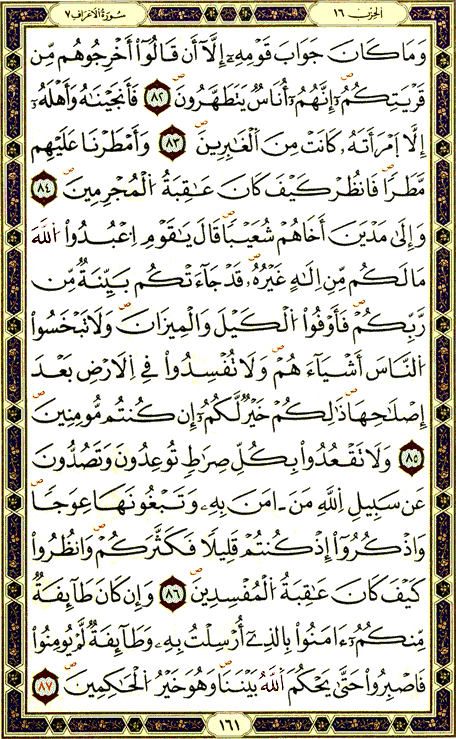 الحزب ١٦
سُورَةُ الاَعْرَافِ ٧
وَمَا كَانَ جَوَابَ قَوْمِهِۦٓ إِلَّآ أَن قَالُوٓاْ أَخْرِجُوهُم مِّن
قَرْيَتِكُمُۥٓ إِنَّهُمُۥٓ أُنَاسٞ يَتَطَهَّرُونَ ٨٢ فَأَنجَيْنَٰهُ وَأَهْلَهُۥٓ
إِلَّا اَمْرَأَتَهُۥ كَانَتْ مِنَ اَلْغَٰبِرِينَ ٨٣ وَأَمْطَرْنَا عَلَيْهِم
مَّطَرٗا فَانظُرْ كَيْفَ كَانَ عَٰقِبَةُ اُلْمُجْرِمِينَ ٨٤
وَإِلَىٰ مَدْيَنَ أَخَاهُمْ شُعَيْبٗا قَالَ يَٰقَوْمِ اِعْبُدُواْ اُللَّهَ
مَا لَكُم مِّنِ اِلَٰهٍ غَيْرُهُۥ قَدْ جَآءَتْكُم بَيِّنَةٞ مِّن
رَّبِّكُمْ فَأَوْفُواْ اُلْكَيْلَ وَالْمِيزَانَ وَلَا تَبْخَسُواْ
اُلنَّاسَ أَشْيَآءَهُمْ وَلَا تُفْسِدُواْ فِي اِلَارْضِ بَعْدَ
إِصْلَٰحِهَا ذَٰلِكُمْ خَيْرٞ لَّكُمُۥٓ إِن كُنتُم مُّومِنِينَ
٨٥ وَلَا تَقْعُدُواْ بِكُلِّ صِرَٰطٖ تُوعِدُونَ وَتَصُدُّونَ
عَن سَبِيلِ اِللَّهِ مَنَ اٰمَنَ بِهِۦ وَتَبْغُونَهَا عِوَجٗا
وَاذْكُرُوٓاْ إِذْ كُنتُمْ قَلِيلٗا فَكَثَّرَكُمْ وَانظُرُواْ
كَيْفَ كَانَ عَٰقِبَةُ اُلْمُفْسِدِينَ ٨٦ وَإِن كَانَ طَآئِفَةٞ
مِّنكُمُۥٓ ءَامَنُواْ بِالذِےٓ أُرْسِلْتُ بِهِۦ وَطَآئِفَةٞ لَّمْ يُومِنُواْ
فَاصْبِرُواْ حَتَّىٰ يَحْكُمَ اَللَّهُ بَيْنَنَا وَهُوَ خَيْرُ اُلْحَٰكِمِينَ ٨٧
١٦١